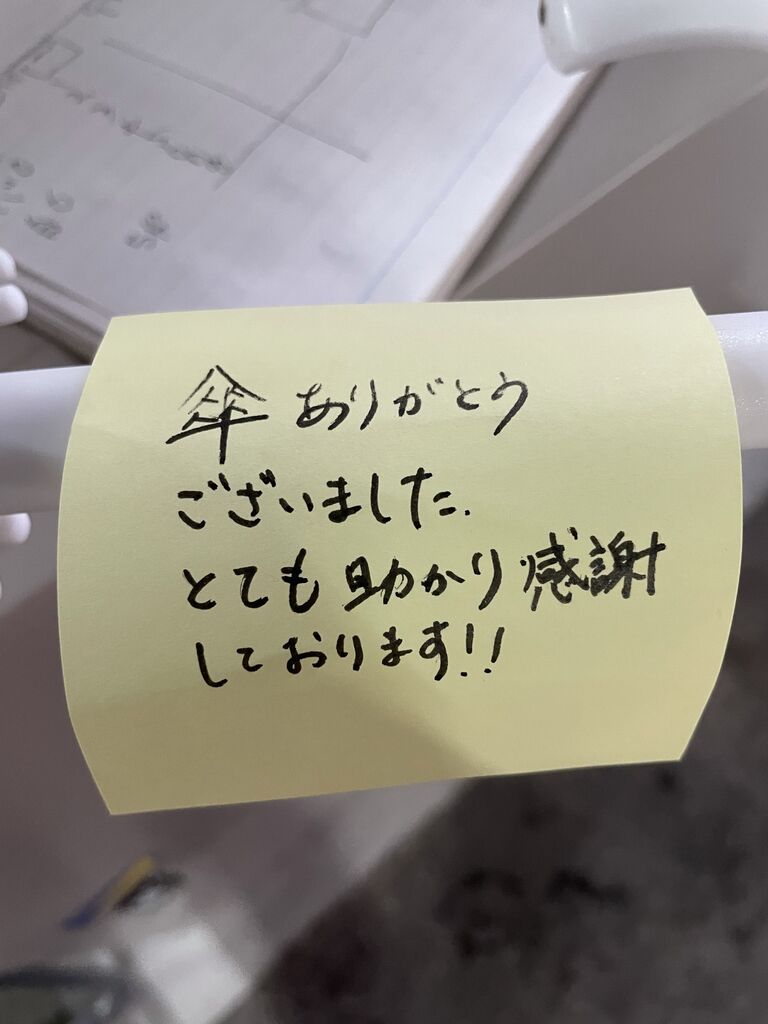 傘ありがとう
ございました.
とても助かり感謝
しております!!